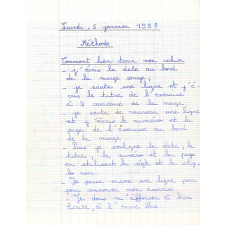 Lundi, 5 janvier 1998
Méthode
Comment bien tenir mon cahier
- j'écris la date au bord
de la marge rouge,
- je saute une ligne et j'é-
cris le titre de l'exercice
à 3 carreaux de la marge,
- je saute de nouveau une ligne
et j'écris le numéro et la
page de l'exercice au bord
de la marge
- Puis je souligne la date, le
titre, le numéro et la page
en utilisant la règle et le stylo
- Je passe une ligne pour
pour commencer mon exercice
- Je dois m'efforcer à bien
écrire, à l'